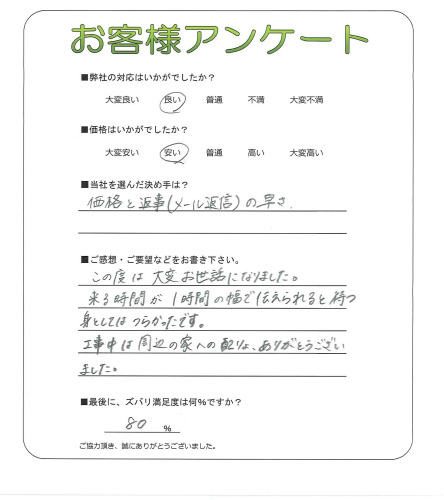 お客様アンケート
■弊社の対応はいかがでしたか？
大変良い 良い 普通 不満 大変不満
■価格はいかがでしたか？
大変安い 安い 普通 高い 大変高い
■当社を選んだ決め手は？
価格と返事(メール返信)の早さ.
■ご感想・ご要望などをお書き下さい。
この度は大変お世話になりました。
来る時間が1時間の幅で伝えられると待つ
身としてはつらかったです。
工事中は周辺の家への配りょ、ありがとうござい
ました。
■最後に、ズバリ満足度は何%ですか？
80 %
ご協力頂き、誠にありがとうございました。